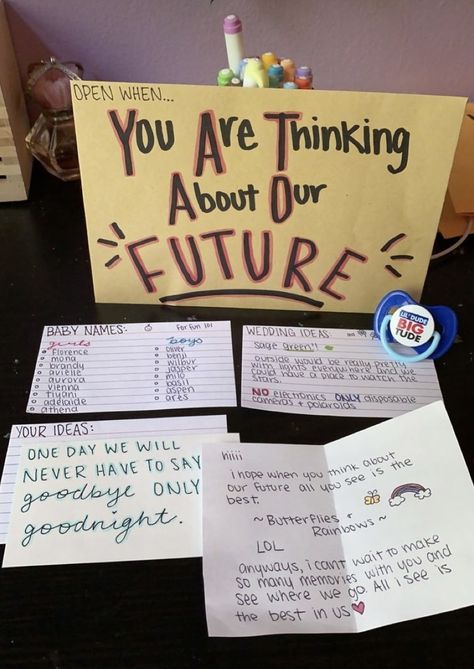 OPEN WHEN...
YOU ARE THINKING
ABOUT OUR
FUTURE
LIL' DUDE
BIG
TUDE
BABY NAMES:
For fun lol
girls
boys
florence
mona
brandy
avielle
aurora
vienna
tiyani
adelaide
athend
oliver
benji
wilbur
jasper
milo
basil
aspen
ares
WEDDING IDEAS:
sage green!!
outside would be really pretty
with lights everywhere and we
could have a place to watch the
stars.
NO electronics ONLY disposable
cameras + polaroids
YOUR IDEAS:
ONE DAY WE WILL
NEVER HAVE TO SAY
goodbye ONLY
goodnight.
hiiii
i hope when you think about
our future all you see is the
best.
~ Butterflies +
Rainbows ~
LOL
anyways, i cant wait to make
so many memories with you and
see where we go. All i see is
the best in us